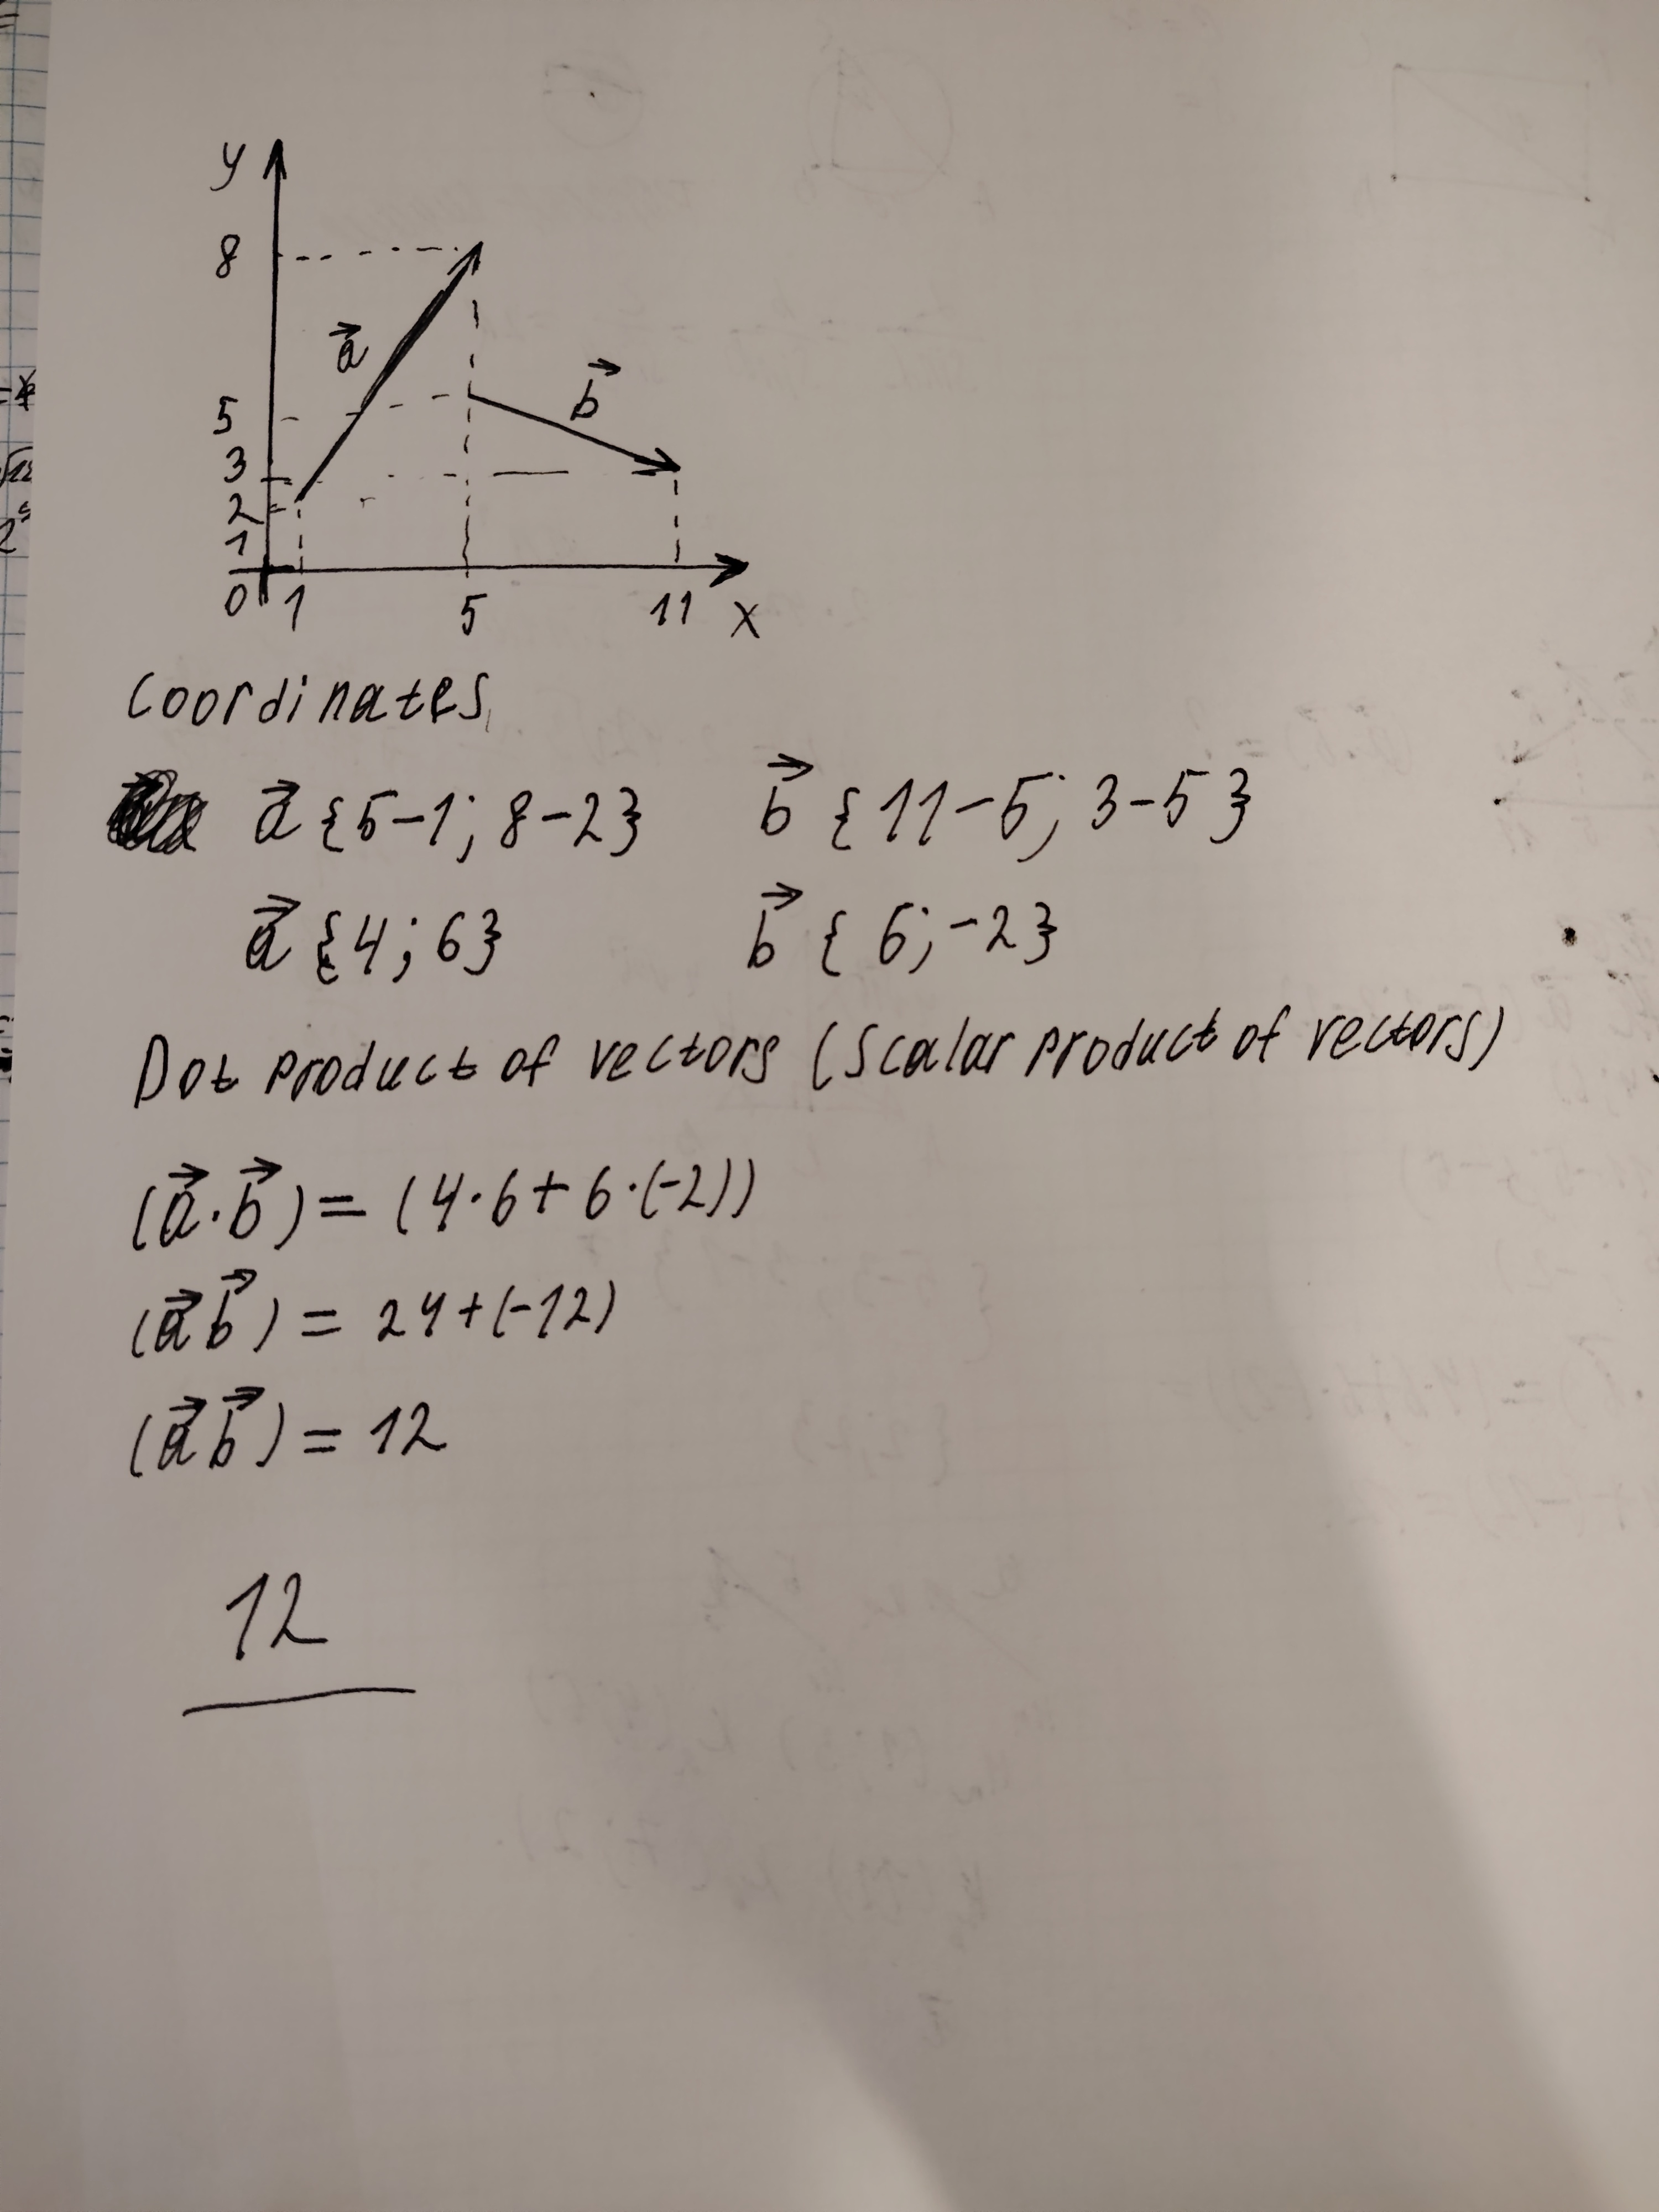 y
8
a⃗
5
b⃗
3
2
1
0 1 5 11 x
Coordinates
a⃗ {5-1; 8-2} b⃗ {11-5; 3-5}
a⃗ {4; 6} b⃗ {6; -2}
Dot product of vectors (Scalar product of vectors)
(a⃗·b⃗) = (4·6+6·(-2))
(a⃗b⃗) = 24+(-12)
(a⃗b⃗) = 12
12